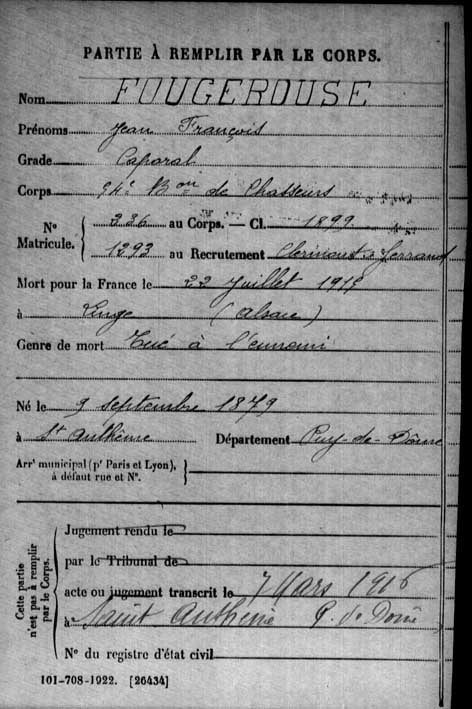 PARTIE À REMPLIR PAR LE CORPS.
Nom FOUGEROUSE
Prénoms Jean François
Grade Caporal
Corps 54e Bon de Chasseurs
No Matricule. 336 au Corps. — Cl. 1899
1293 au Recrutement Clermont-Ferrand
Mort pour la France le 22 Juillet 1915
à Linge (Alsace)
Genre de mort Tué à l'ennemi
Né le 9 septembre 1879
à St Anthème Département Puy-de-Dôme
Arrt municipal (pr Paris et Lyon),
à défaut rue et No.
Cette partie n'est pas à remplir par le Corps.
Jugement rendu le
par le Tribunal de
acte ou jugement transcrit le 7 Mars 1916
à Saint Anthème P. de Dôme
No du registre d'état civil
101-708-1922. [26434]